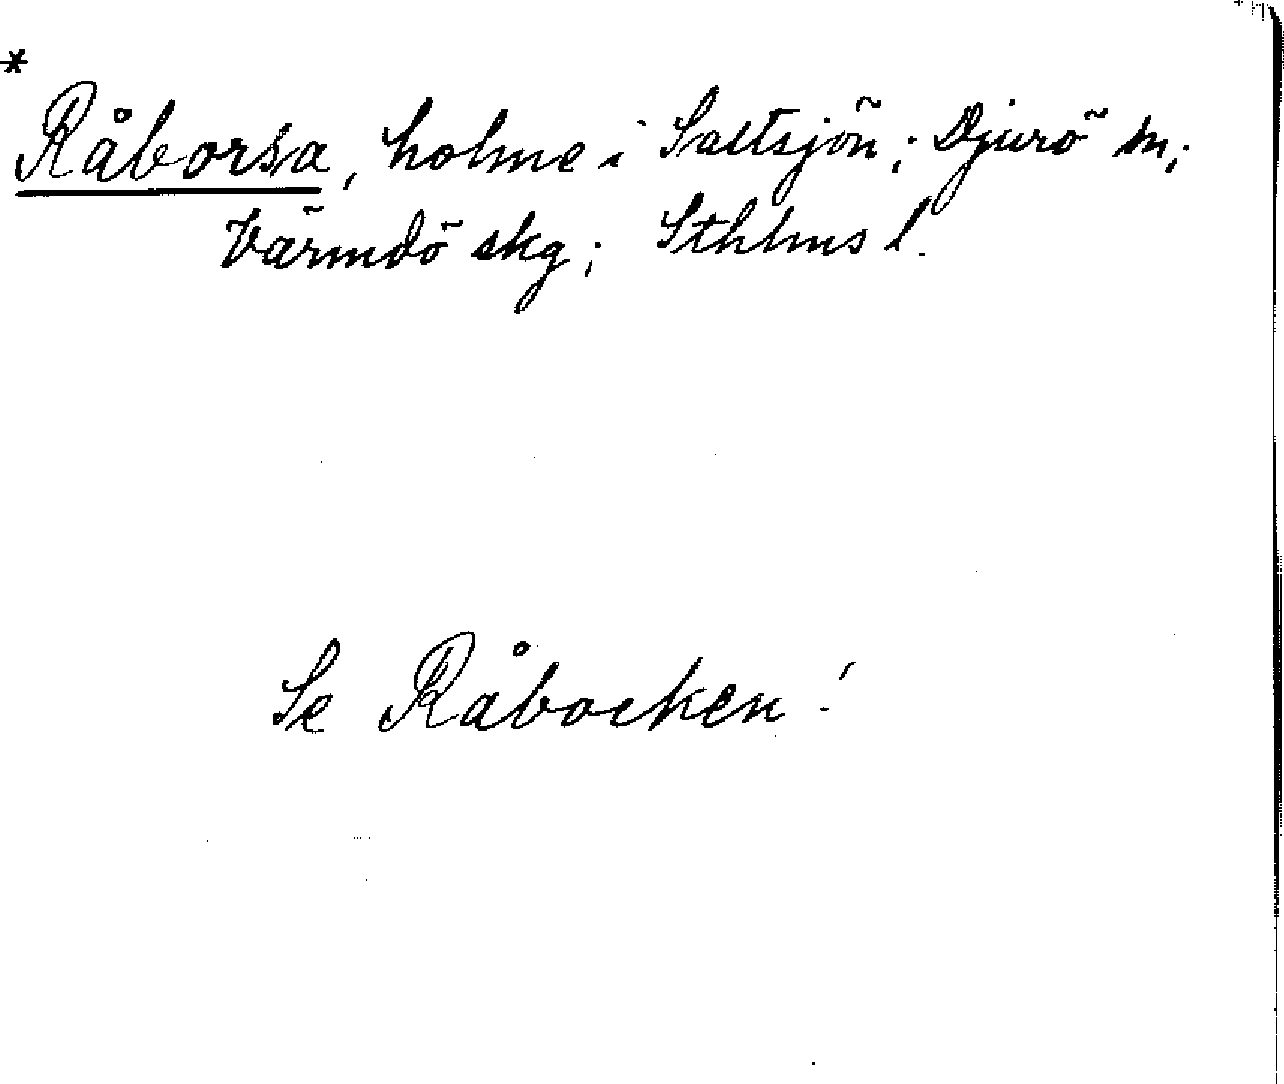 *
Råborsa, holme i Saltsjön; Djurö sn;
Värmdö skg; Sthlms l.
Se Råbocken!